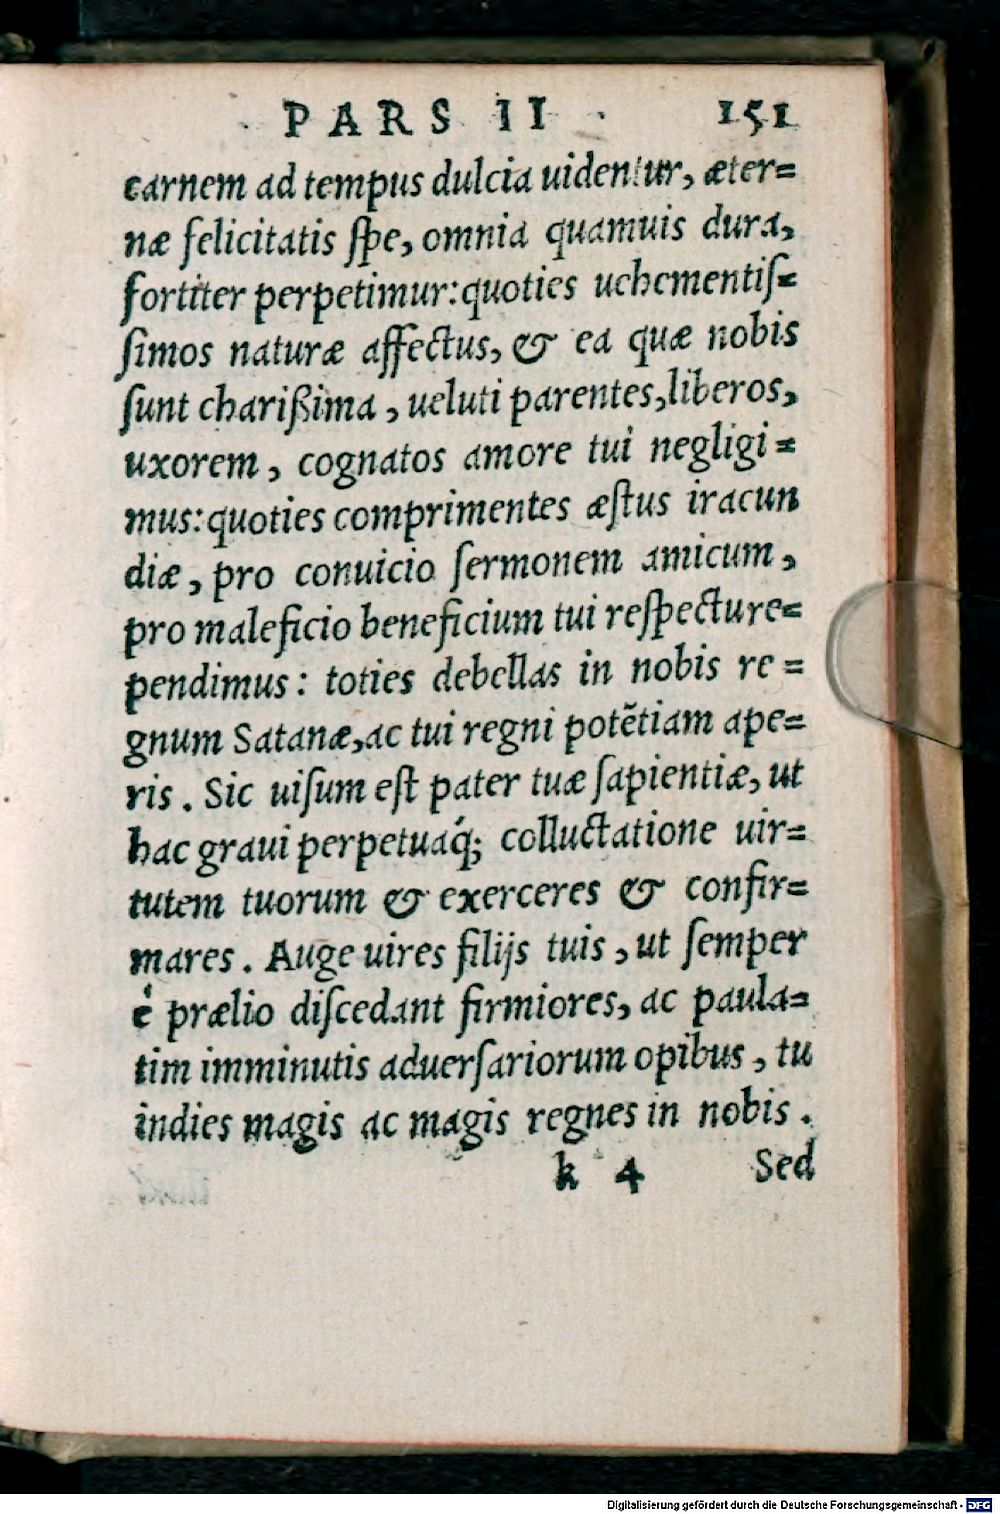 PARS II 151
carnem ad tempus dulcia uidentur, æter=
næ felicitatis ſpe, omnia quamuis dura,
fortiter perpetimur: quoties uehementiſ=
ſimos naturæ affectus, & ea quæ nobis
ſunt charißima, ueluti parentes, liberos,
uxorem, cognatos amore tui negligi=
mus: quoties comprimentes æſtus iracun
diæ, pro conuicio ſermonem amicum,
pro maleficio beneficium tui reſpectu re=
pendimus: toties debellas in nobis re=
gnum Satanæ, ac tui regni potẽtiam ape=
ris. Sic uiſum eſt pater tuæ ſapientiæ, ut
hac graui perpetuáq; colluctatione uir=
tutem tuorum & exerceres & confir=
mares. Auge uires filijs tuis, ut ſemper
è prælio diſcedant firmiores, ac paula=
tim imminutis aduerſariorum opibus, tu
indies magis ac magis regnes in nobis.
k 4 Sed
Digitalisierung gefördert durch die Deutsche Forschungsgemeinschaft - DFG